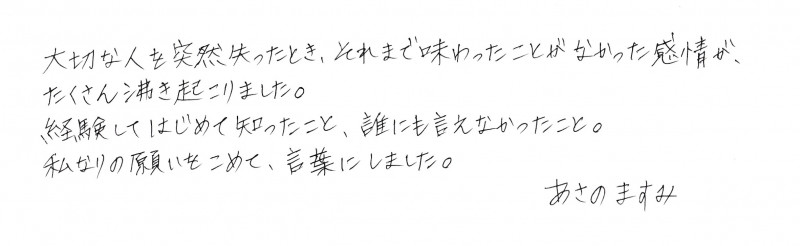 大切な人を突然失ったとき、それまで味わったことがなかった感情が、
たくさん沸き起こりました。
経験してはじめて知ったこと、誰にも言えなかったこと。
私なりの願いをこめて、言葉にしました。
あさのますみ